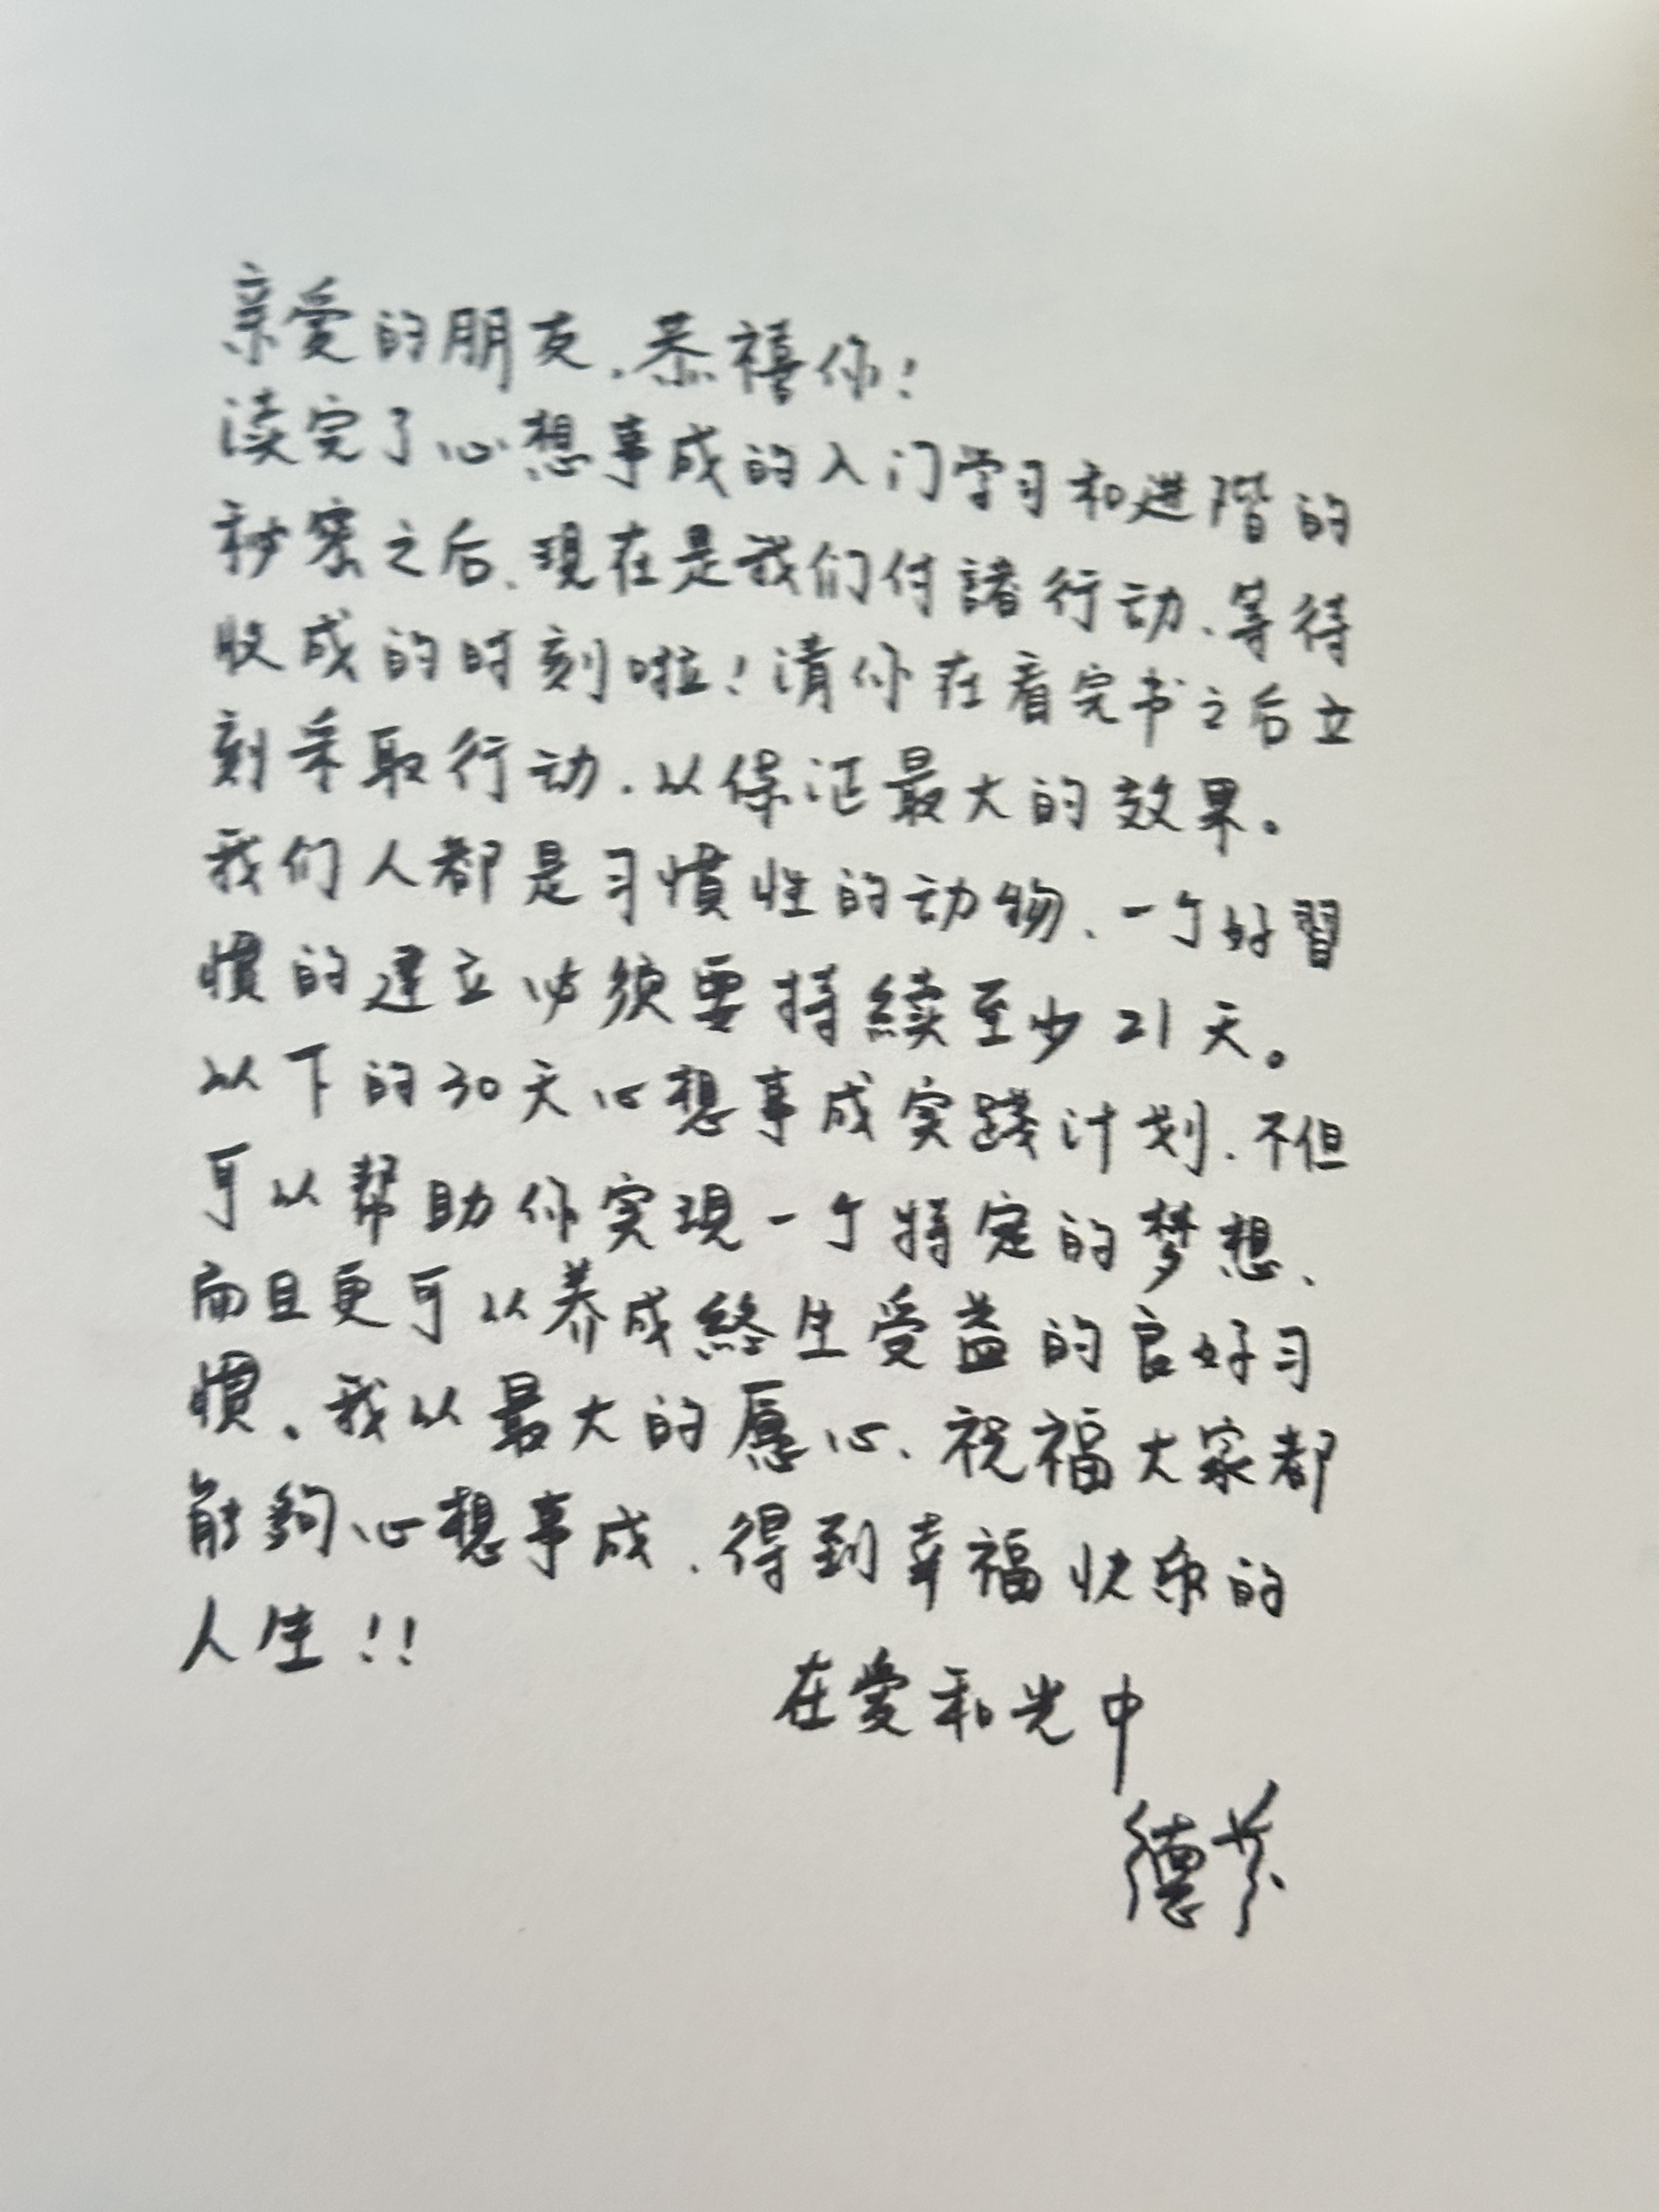 亲爱的朋友，恭禧你！
读完了心想事成的入门学习和进階的
秘密之后、現在是我们付諸行动、等待
收成的时刻啦！请你在看完书之后立
刻采取行动，以保证最大的效果。
我们人都是习慣性的动物、一个好習
慣的建立必须要持續至少21天。
以下的30天心想事成实踐计划，不但
可以帮助你实現一个特定的梦想、
而且更可以养成終生受益的良好习
慣。我以最大的愿心、祝福大家都
能夠心想事成，得到幸福快乐的
人生！！
在愛和光中
德芬